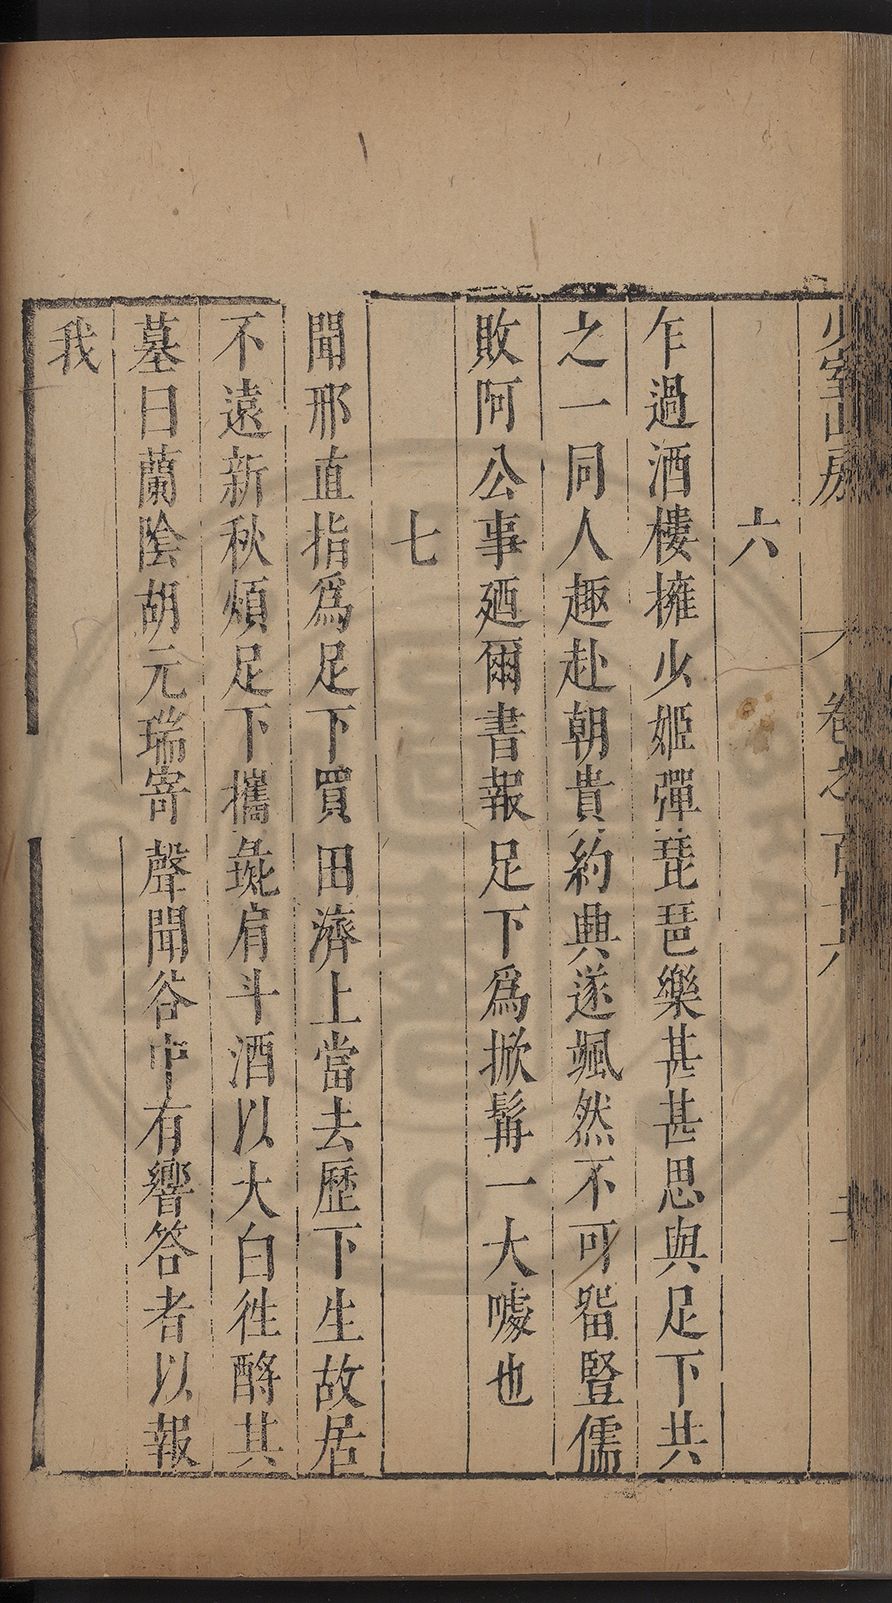 少室山房 卷之百十六
六
乍過酒樓擁少姬彈琵琶樂甚甚思與足下共
之一同人趣赴朝貴約興遂颯然不可畱豎儒
敗阿公事廼爾書報足下爲掀髯一大噱也
七
聞邢直指爲足下買田濟上當去歷下生故居
不遠新秋煩足下攜彘肩斗酒以大白徃酹其
墓曰蘭陰胡元瑞寄聲聞谷中有響答者以報
我